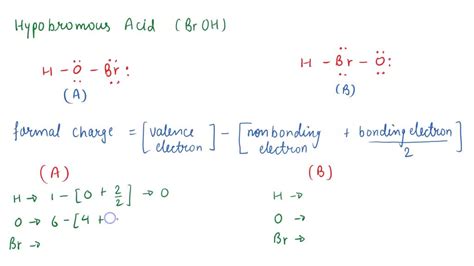 Hypobromous Acid (BrOH)
H - O - Br :
(A)
H - Br - O :
(B)
formal charge = [valence electron] - [nonbonding electron + bonding electron / 2]
(A)
(B)
H → 1 - [0 + 2/2] → 0
H →
O → 6 - [4 +
O →
Br →
Br →